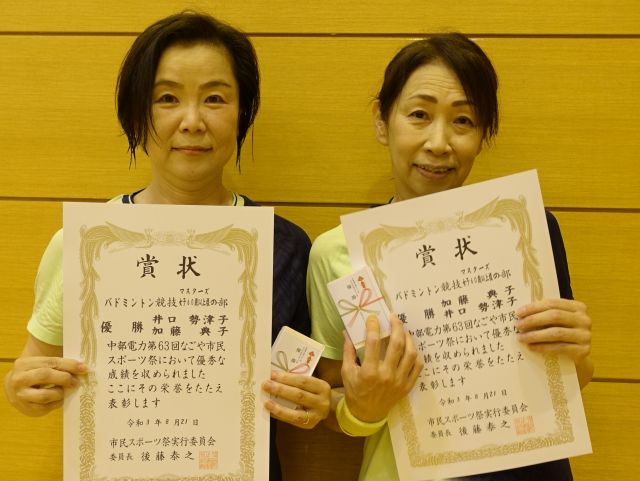 賞状
マスターズ
バドミントン競技女子40歳以上複の部
優勝 井口 勢津子
加藤 典子
中部電力第63回なごや市民
スポーツ祭において優秀な
成績を収められました
ここにその栄誉をたたえ
表彰します
令和3年8月21日
市民スポーツ祭実行委員会
委員長 後藤泰之
賞状
マスターズ
バドミントン競技女子40歳以上複の部
優勝 加藤 典子
井口 勢津子
中部電力第63回なごや市民
スポーツ祭において優秀な
成績を収められました
ここにその栄誉をたたえ
表彰します
令和3年8月21日
市民スポーツ祭実行委員会
委員長 後藤泰之